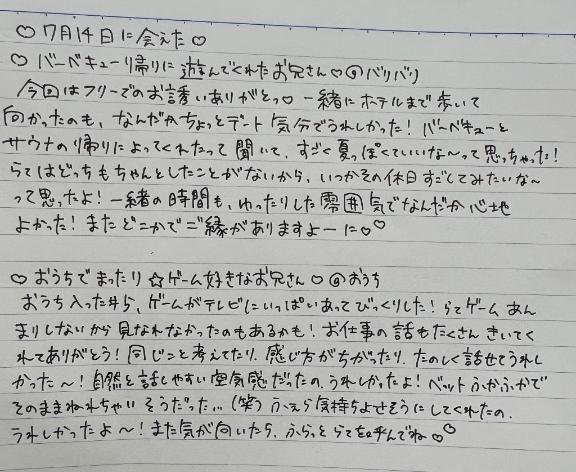 ♡ 7月14日に会えた ♡
♡ バーベキュー帰りに 遊んでくれたお兄さん ♡ @バリバリ
今回はフリーでのお誘いありがとっ♡ 一緒にホテルまで歩いて
向かったのも、なんだかちょっとデート気分でうれしかった! バーベキューと
サウナの帰りによってくれたって聞いて、すごく夏っぽくていいな〜って思っちゃった!
らてはどっちもちゃんとしたことがないから、いつかその休日すごしてみたいな〜
って思ったよ! 一緒の時間も、ゆったりした雰囲気でなんだか心地
よかった! またどこかでご縁がありますよーに♡♡
♡ おうちでまったり ☆ゲーム好きなお兄さん ♡ @おうち
おうち入った時から、ゲームがテレビにいっぱいあってびっくりした! らてゲームあん
まりしないから見なれなかったのもあるかも! お仕事の話もたくさんきいてく
れてありがとう! 同じこと考えてたり、感じ方がちがったり、たのしく話せてうれし
かった〜! 自然と話しやすい空気感だったの、うれしかったよ! ベットふかふかで
そのままねれちゃいそうだった... (笑) 気持ちよさそうにしてくれたの、
うれしかったよ〜! また気が向いたら、ふらっとらてを呼んでね♡♡